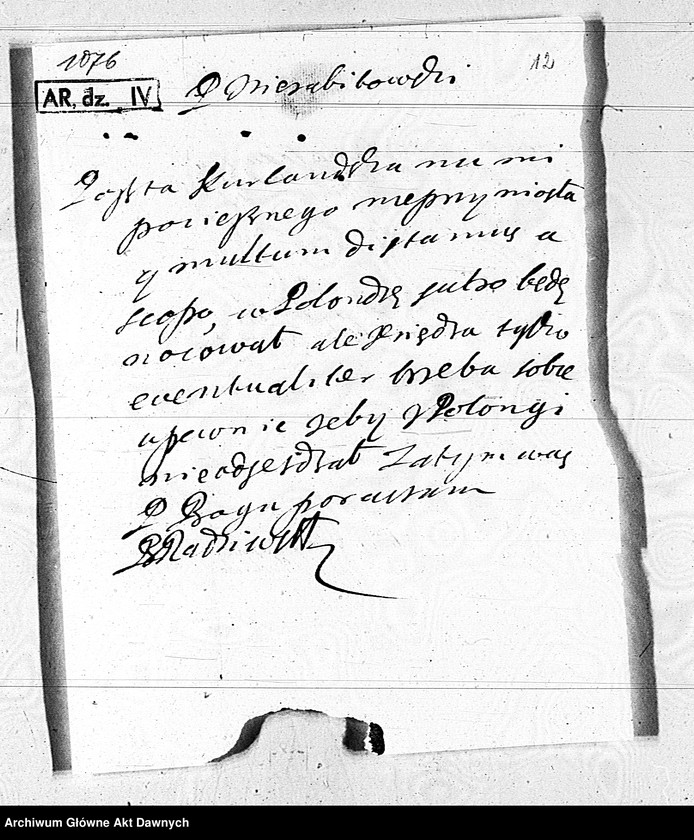 1076
12
AR, dz. IV
P Niezabitowski
Poczta Kurlandzka nic mi
pociesznego nieprzyniosła
y multum distamus a
scopo, w Polondze jutro będę
nocował ale Xiędza tylko
eventualiter trzeba sobie
upewnic zeby z Polongi
nieodjezdzał Zatym was
P Bogu poruczam
BRadziwiłł
Archiwum Główne Akt Dawnych